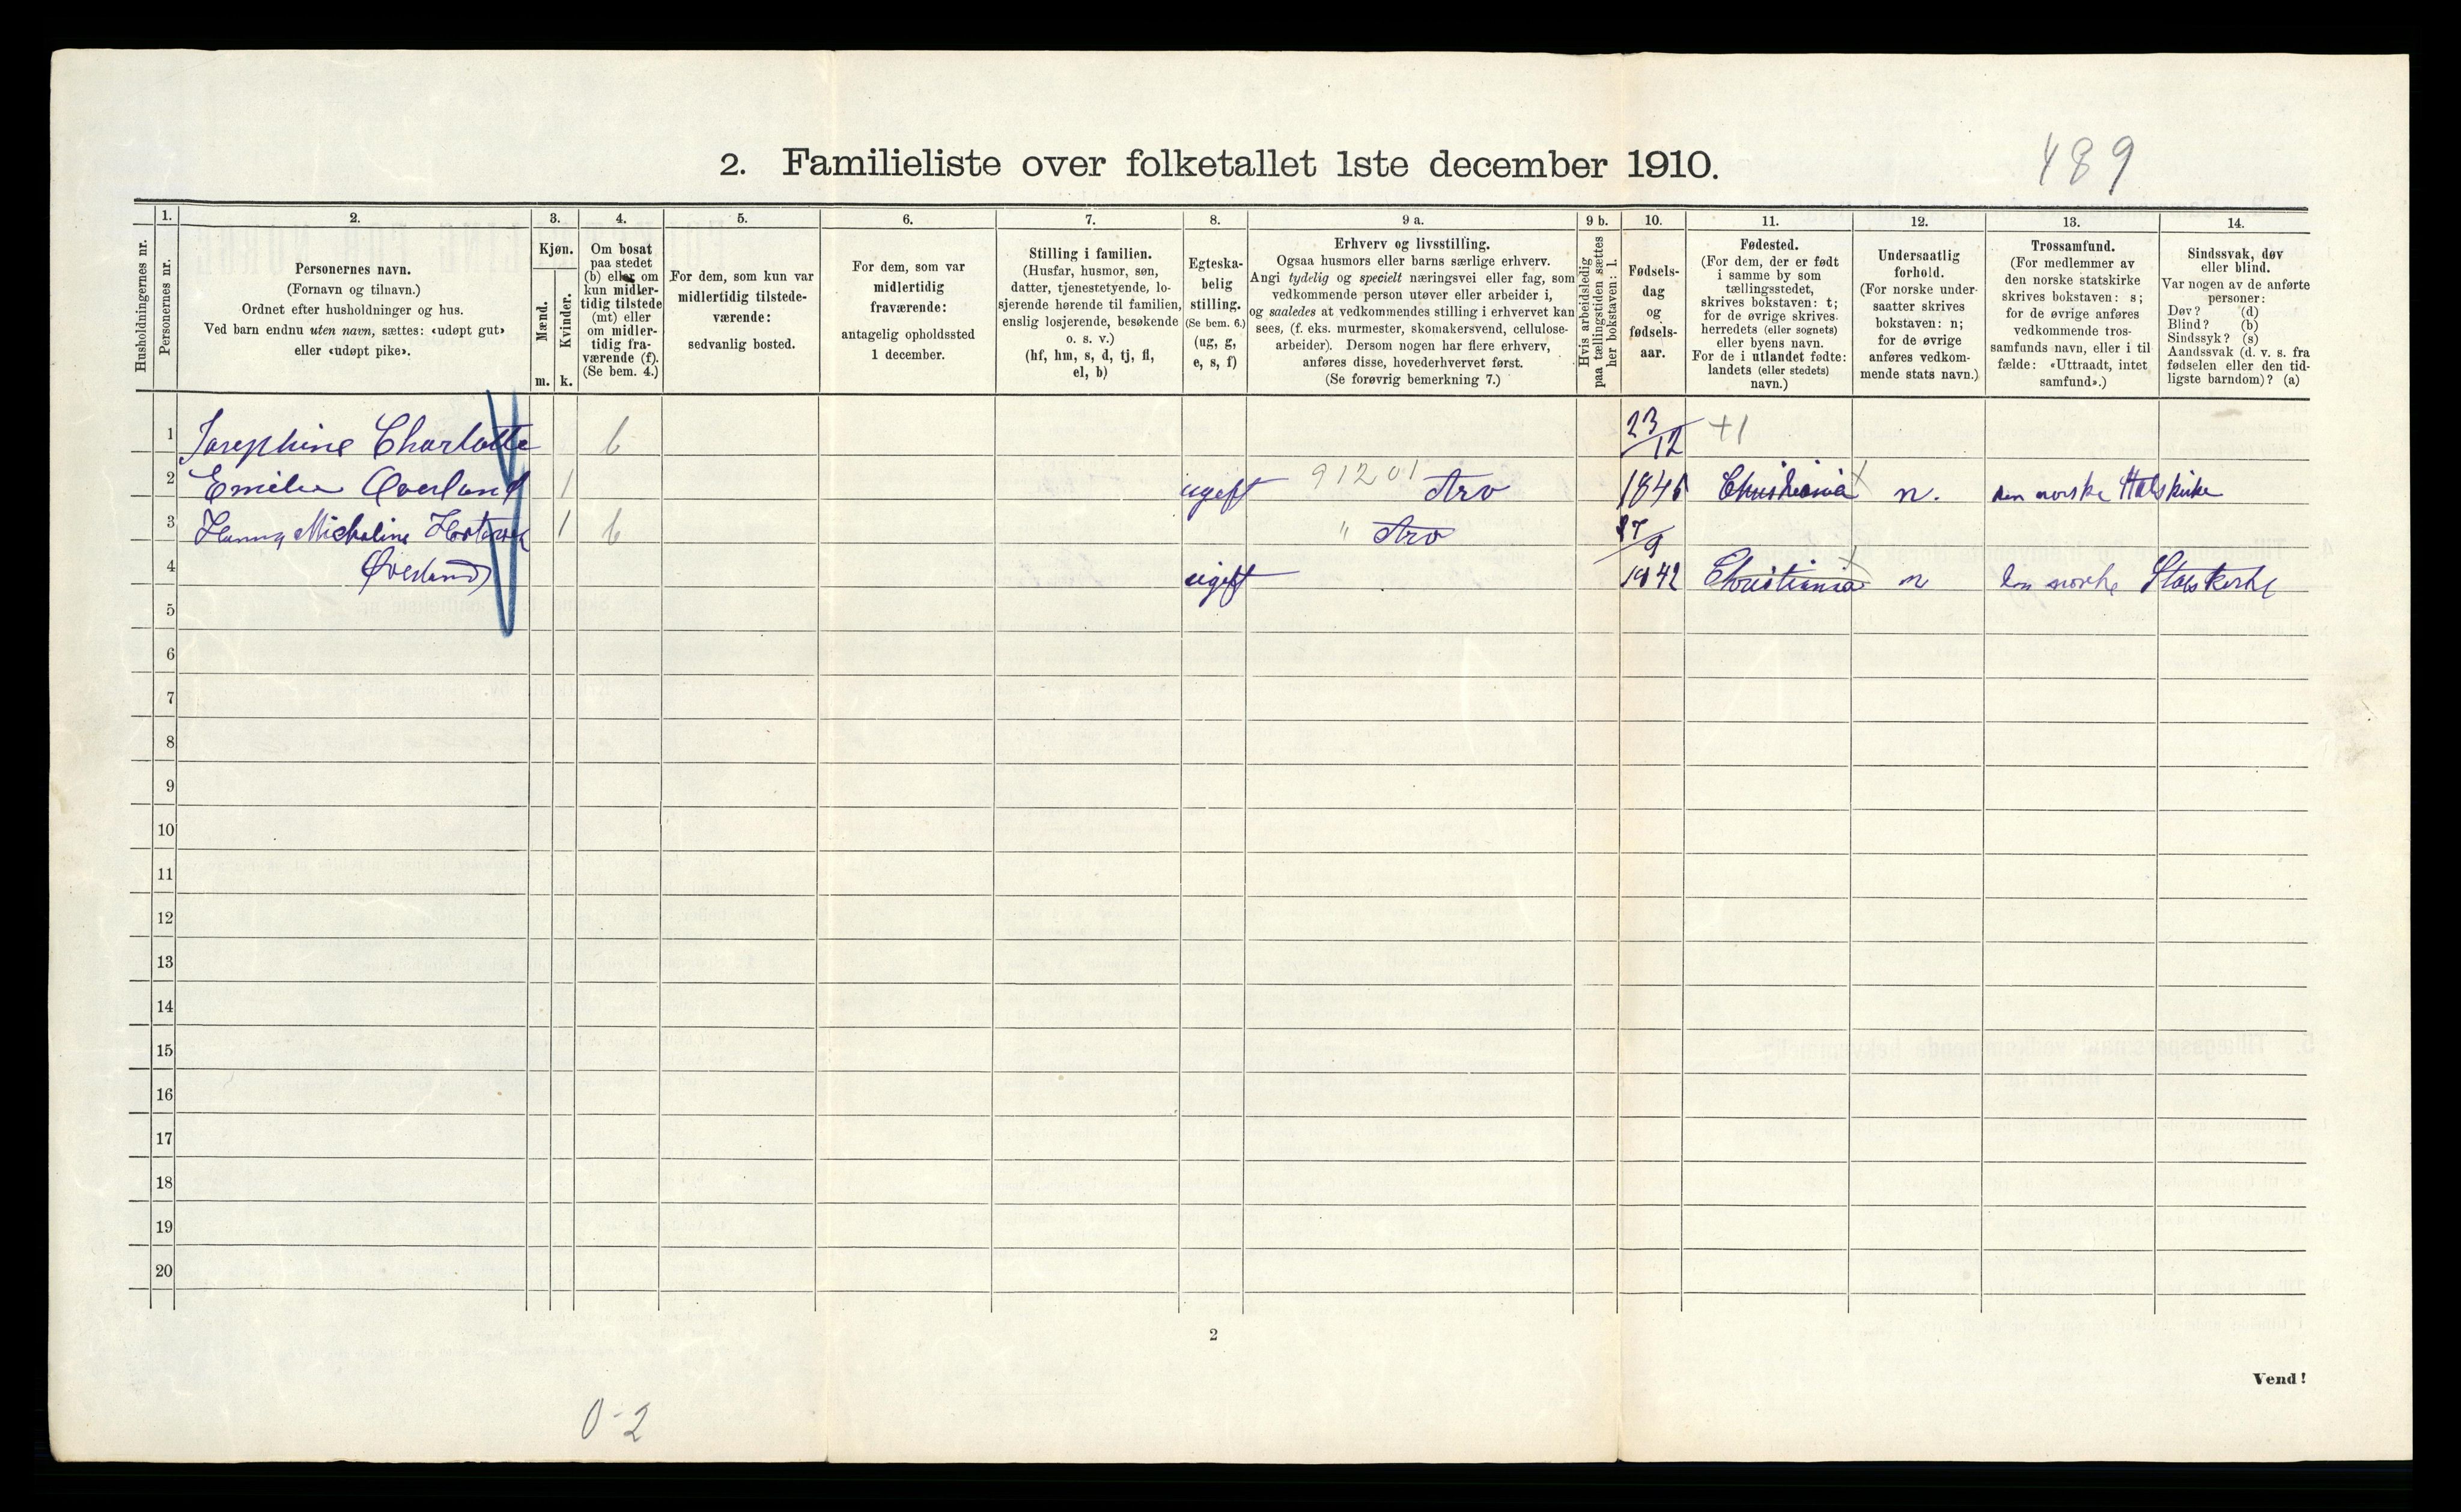 489
2. Familieliste over folketallet 1ste december 1910.
Husholdningernes nr.
1.
Personernes nr.
2.
Personernes navn.
(Fornavn og tilnavn.)
Ordnet efter husholdninger og hus.
Ved barn endnu uten navn, sættes: «udøpt gut»
eller «udøpt pike».
3.
Kjøn.
Mænd.
m.
Kvinder.
k.
4.
Om bosat
paa stedet
(b) eller om
kun midler-
tidig tilstede
(mt) eller
om midler-
tidig fra-
værende (f).
(Se bem. 4.)
5.
For dem, som kun var
midlertidig tilstede-
værende:
sedvanlig bosted.
6.
For dem, som var
midlertidig
fraværende:
antagelig opholdssted
1 december.
7.
Stilling i familien.
(Husfar, husmor, søn,
datter, tjenestetyende, lo-
sjerende hørende til familien,
enslig losjerende, besøkende
o. s. v.)
(hf, hm, s, d, tj, fl,
el, b)
8.
Egteska-
belig
stilling.
(Se bem. 6.)
(ug, g,
e, s, f)
9 a.
Erhverv og livsstilling.
Ogsaa husmors eller barns særlige erhverv.
Angi tydelig og specielt næringsvei eller fag, som
vedkommende person utøver eller arbeider i,
og saaledes at vedkommendes stilling i erhvervet kan
sees, (f. eks. murmester, skomakersvend, cellulose-
arbeider). Dersom nogen har flere erhverv,
anføres disse, hovederhvervet først.
(Se forøvrig bemerkning 7.)
9 b.
Hvis arbeidsledig
paa tællingstiden sættes
her bokstaven: l.
10.
Fødsels-
dag
og
fødsels-
aar.
11.
Fødested.
(For dem, der er født
i samme by som
tællingsstedet,
skrives bokstaven: t;
for de øvrige skrives
herredets (eller sognets)
eller byens navn.
For de i utlandet fødte:
landets (eller stedets)
navn.)
12.
Undersaatlig
forhold.
(For norske under-
saatter skrives
bokstaven: n;
for de øvrige
anføres vedkom-
mende stats navn.)
13.
Trossamfund.
(For medlemmer av
den norske statskirke
skrives bokstaven: s;
for de øvrige anføres
vedkommende tros-
samfunds navn, eller i til-
fælde: «Uttraadt, intet
samfund».)
14.
Sindssvak, døv
eller blind.
Var nogen av de anførte
personer:
Døv? (d)
Blind? (b)
Sindssyk? (s)
Aandssvak (d. v. s. fra
fødselen eller den tid-
ligste barndom)? (a)
1 Josephine Charlotte b 23/12 +1
2 Emilie Øverland 1 ugift 91201 1845 Christiania x n. den norske Statskirke
3 Hanna Micheline 1 b "
4 Øverland ugift 1842 Christiania x n den norske Statskirke
5
6
7
8
9
10
11
12
13
14
15
16
17
18
19
20
2
Vend!
0-2